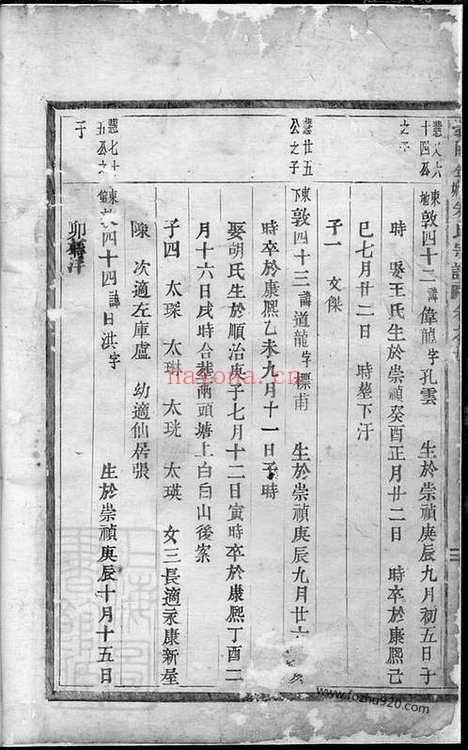 慧
十四公
之子
東
敦四十二諱偉龍字孔雲 生於崇禎庚辰九月初五日子
時 娶王氏生於崇禎癸酉正月廿二日 時卒於康熙己
巳七月廿二日 時塟下汙
子一 文傑
慧廿五
公之子
東下敦四十三諱道龍字標甫 生於崇禎庚辰九月廿六
時卒於康熙乙未九月十一日子時
娶胡氏生於順治庚子七月十二日寅時卒於康熙丁酉二
月十六日戌時合塟兩頭塘上白白山後案
子四 太琛 太琳 太珖 太瑛 女三長適永康新屋
陳 次適左庫盧 幼適仙居張
慧七十
五公之
子
東
敦四十四諱日洪字
卯梧洋 生於崇禎庚辰十月十五日
nayona.cn
www.fozhu920.com